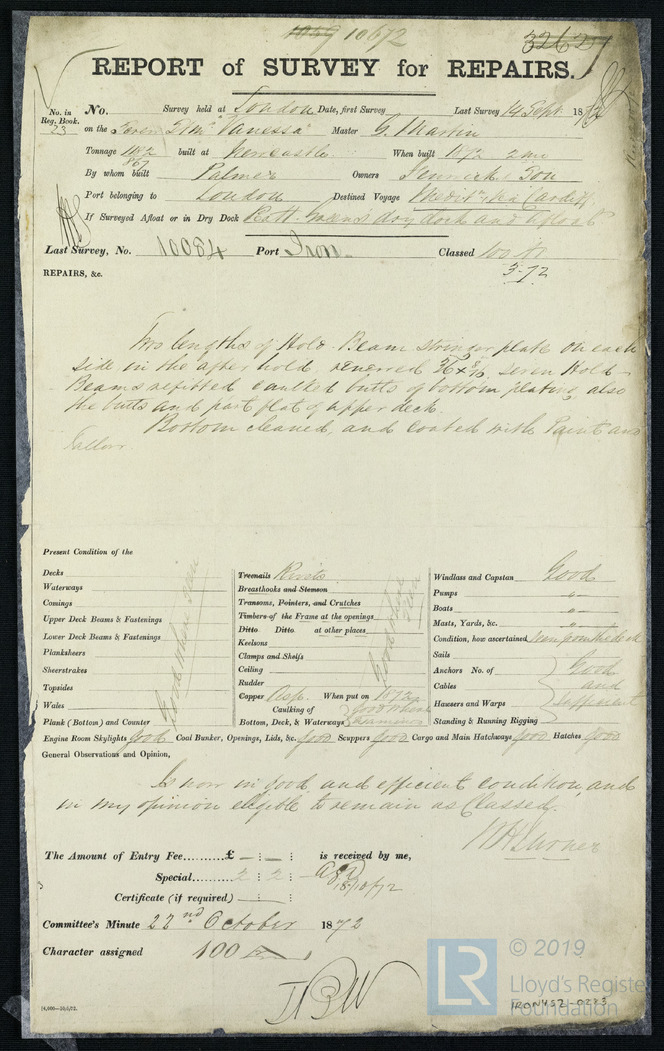 1049 10672
3262
REPORT of SURVEY for REPAIRS.
No. in Reg. Book. No. Survey held at London Date, first Survey Last Survey 14 Sept. 1872
23 on the Screw Str "Vanessa" Master G. Martin
Tonnage 1182 built at Newcastle When built 1872 2 mo
867
By whom built Palmer Owners Fenwick & Son
Port belonging to London Destined Voyage Medit. via Cardiff
If Surveyed Afloat or in Dry Dock dry dock and afloat
Last Survey, No. 10084 Port Iron Classed 100 A1
3-72
REPAIRS, &c.
Two lengths of Hold Beam stringer plate on each
side in the after hold, renewed 26 x 8/16 seven Hold
Beams refitted caulked butts of bottom plating, also
the butts and part flat of upper deck.
Bottom cleaned, and coated with Paint and
Tallow.
Present Condition of the
Decks
Waterways
Comings
Upper Deck Beams & Fastenings
Lower Deck Beams & Fastenings
Planksheers
Sheerstrakes
Topsides
Wales
Plank (Bottom) and Counter
Good where seen
Treenails Rivets
Breasthooks and Stemson
Transoms, Pointers, and Crutches
Timbers of the Frame at the openings
Ditto Ditto at other places
Keelsons
Clamps and Shelfs
Ceiling
Rudder
Good where seen
Copper When put on 1872
Caulking of Bottom, Deck, & Waterways Good where
Windlass and Capstan Good
Pumps "
Boats "
Masts, Yards, &c. "
Condition, how ascertained from the deck
Sails
Anchors No. of
Cables
Hawsers and Warps
Standing & Running Rigging
Good and sufficient
Engine Room Skylights Good Coal Bunker, Openings, Lids, &c. Good Scuppers Good Cargo and Main Hatchways Good Hatches Good
General Observations and Opinion,
Is now in good and efficient condition, and
in my opinion eligible to remain as Classed.
The Amount of Entry Fee.........£ – : – : is received by me,
Special......... 2 : 2 :
18/10/72
Certificate (if required)
Committee's Minute 22nd October 1872
Character assigned 100 A
© 2019
Lloyd's Register
Foundation
LR
IRON452-0223